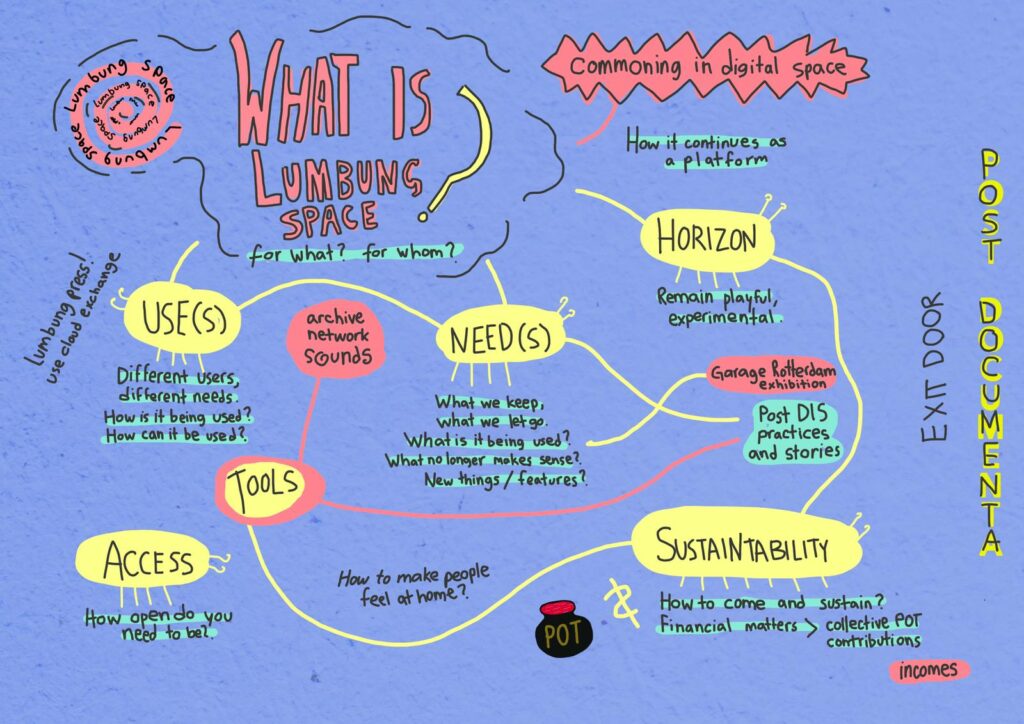 Lumbung space Lumbung space
Lumbung space Lumbung space
WHAT IS
LUMBUNG
SPACE
?
for what? for whom?
Commoning in digital space
How it continues as
a platform
HORIZON
Remain playful,
experimental.
POST DOCUMENTA
EXIT DOOR
Lumbung press!
use cloud exchange
USE(S)
Different users,
different needs.
How is it being used?
How can it be used?
archive
network
sounds
NEED(S)
What we keep,
what we let go.
What is it being used?
What no longer makes sense?
New things / features?
Garage Rotterdam
exhibition
Post D15
practices
and stories
TOOLS
ACCESS
How open do you
need to be?
How to make people
feel at home?
POT
SUSTAINTABILITY
How to come and sustain?
Financial matters > collective POT
contributions
incomes